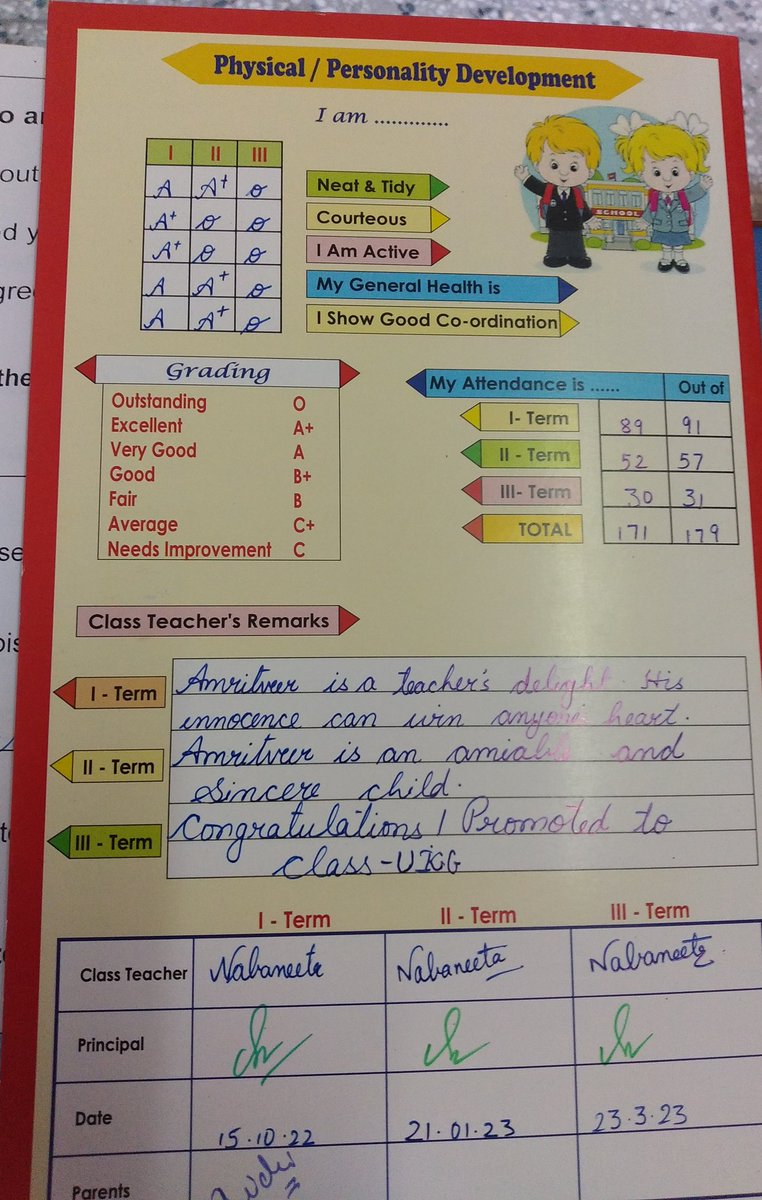 Physical / Personality Development
I am .............
I II III
A A+ O Neat & Tidy
A+ O O Courteous
A+ O O I Am Active
A A+ O My General Health is
A A+ O I Show Good Co-ordination
SCHOOL
Grading
Outstanding O
Excellent A+
Very Good A
Good B+
Fair B
Average C+
Needs Improvement C
My Attendance is ...... Out of
I- Term 89 91
II - Term 52 57
III- Term 30 31
TOTAL 171 179
Class Teacher's Remarks
I - Term Amritveer is a teacher's delight. His
innocence can win anyone's heart.
II - Term Amritveer is an amiable and
Sincere child.
III - Term Congratulations! Promoted to
Class-UKG
I - Term II - Term III - Term
Class Teacher Nabaneeta Nabaneeta Nabaneeta
Principal
Date 15.10.22 21.01.23 23.3.23
Parents